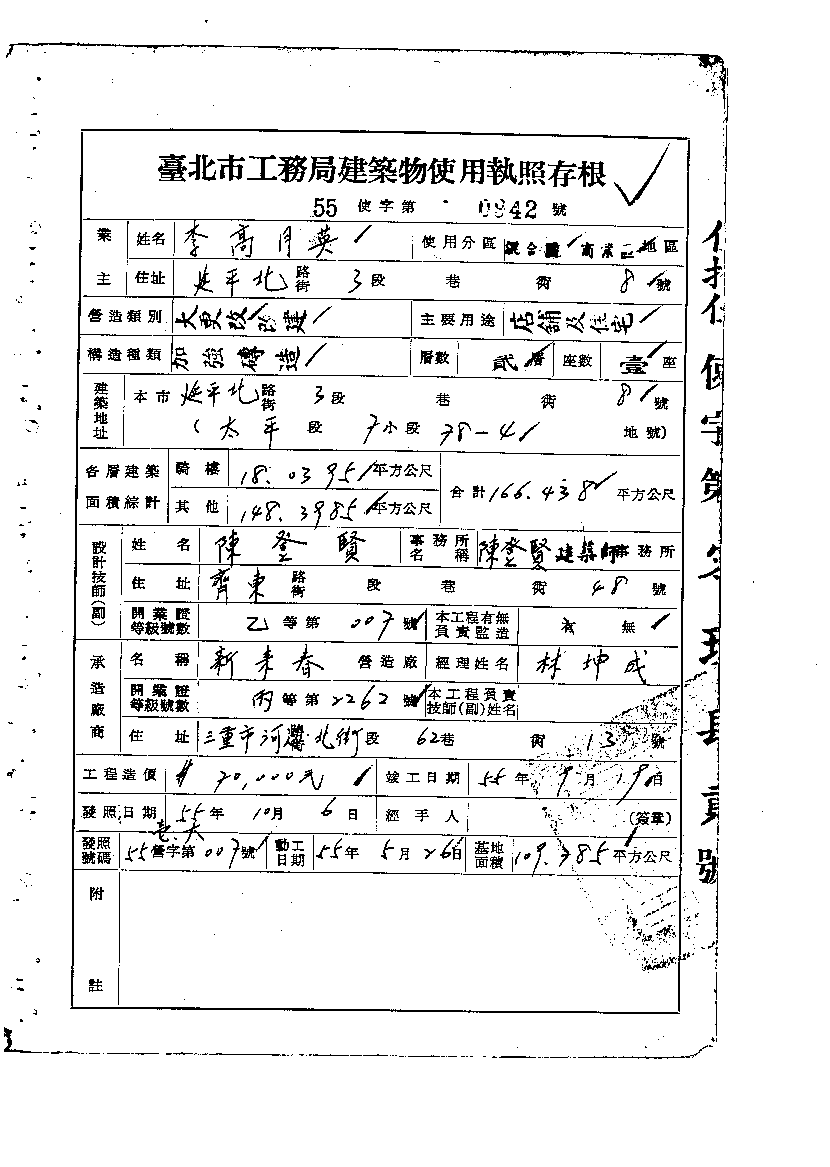 臺北市工務局建築物使用執照存根
55 使字第 0942 號
業主 姓名 李高月英 使用分區 混合區 商業區 地區
住址 延平北 路街 3段 巷 衖 8 號
營造類別 大更改 改建 主要用途 店舖及住宅
構造種類 加強磚造 層數 貳層 座數 壹座
建築地址 本市 延平北 路街 3段 巷 衖 8 號
(太平 段 7小段 78-4 地號)
各層建築面積綜計 騎樓 18.0395 平方公尺 合計 166.438 平方公尺
其他 148.3985 平方公尺
設計技師(副) 姓名 陳登賢 事務所名稱 陳登賢建築師事務所
住址 齊東 路街 段 巷 衖 48 號
開業證等級號數 乙等第 007號 本工程有無負責監造 有 無
承造廠商 名稱 新來春 營造廠 經理姓名 林坤成
開業證等級號數 丙等第 2262 號 本工程負責技師(副)姓名
住址 三重市河邊北街 段 62巷 衖 13 號
工程造價 70,000元 竣工日期 55年 9月 19日
發照日期 55年 10月 6日 經手人 (簽章)
發照號碼 55營字第007號 動工日期 55年 5月 26日 基地面積 109.785 平方公尺
附註
使字第
號